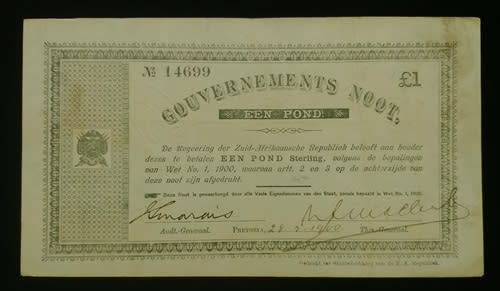 № 14699
£1
GOUVERNEMENTS NOOT,
EEN POND.
De Regeering der Zuid-Afrikaansche Republiek belooft aan houder
dezes te betalen EEN POND Sterling, volgens de bepalingen
van Wet No. 1, 1900, waarvan artt. 2 en 3 op de achterzijde van
deze noot zijn afgedrukt.
Deze Noot is gewaarborgd door alle Vaste Eigendommen van den Staat, zooals bepaald in Wet No. 1, 1900.
Marais
Audt.-Generaal.
PRETORIA, 28 5 1900
Thes.-Generaal.